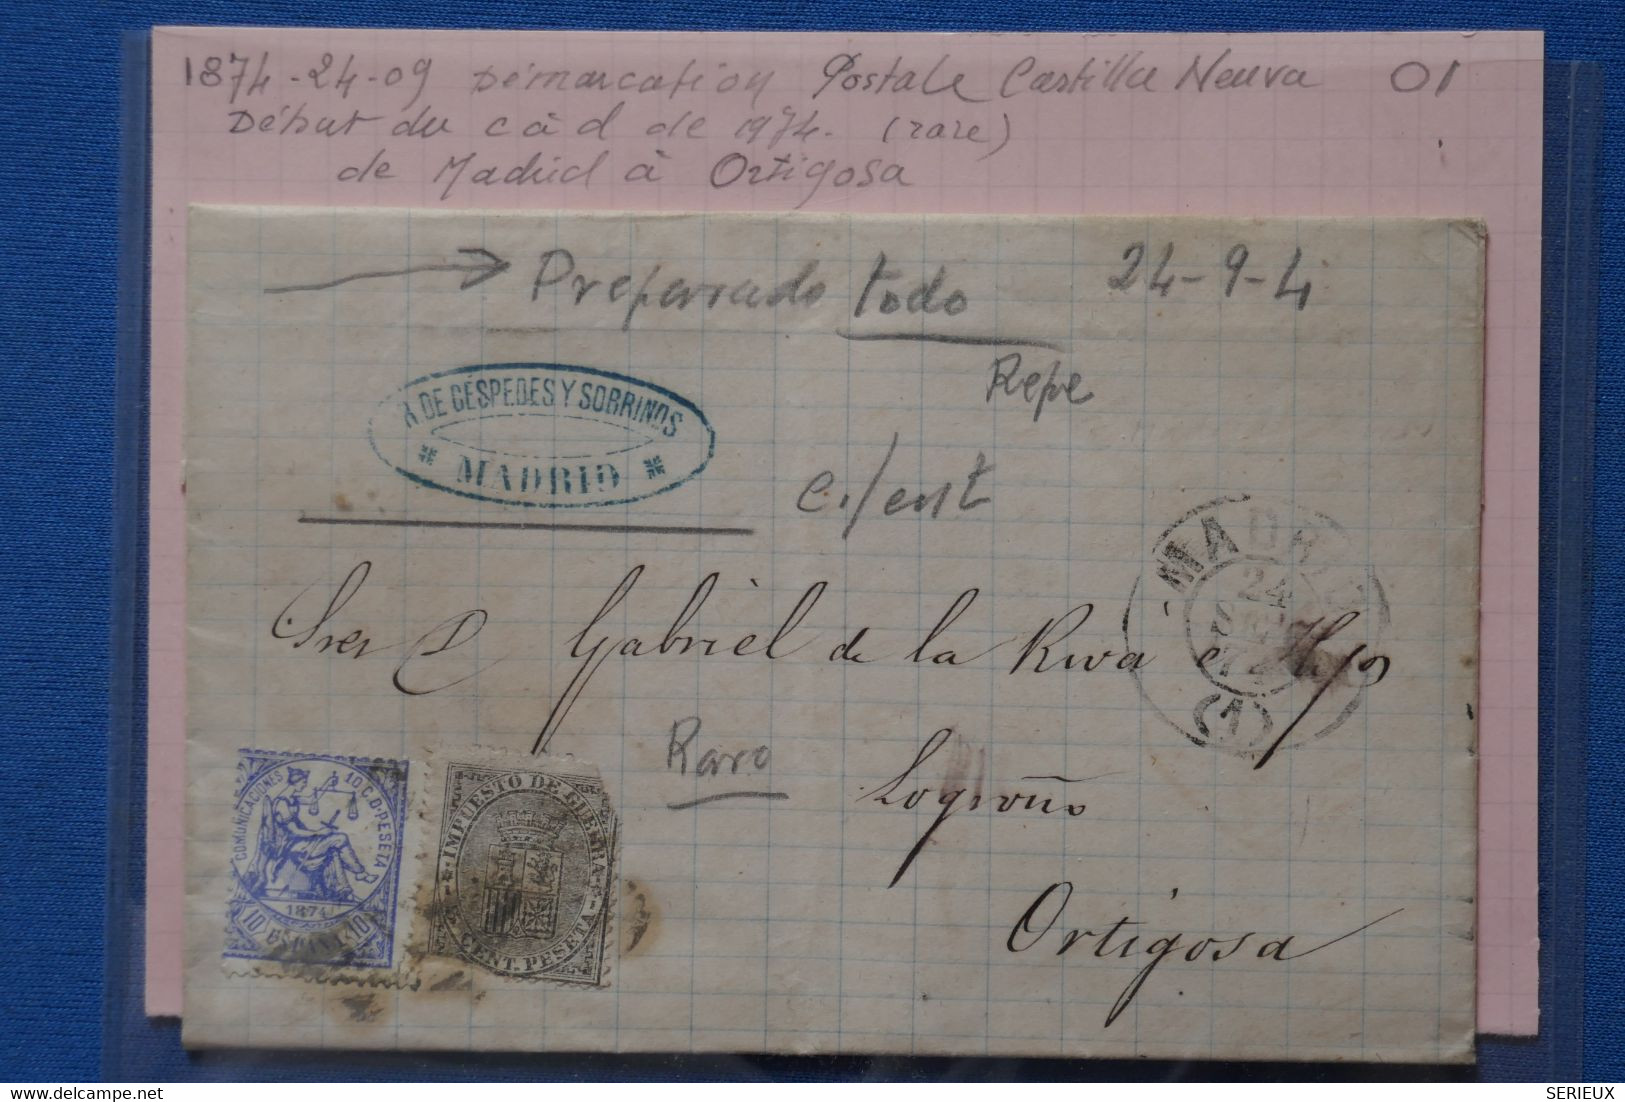 1874-24-09 Démarcation Postale Castilla Neuva 01
Début du c à d de 1974. (rare)
de Madrid à Ortigosa
Preparado todo 24-9-4
Repe
DE CÉSPEDES Y SOBRINOS
MADRID
c./ent
MADRID
24
SET
74
(1)
Sres D Gabriel de la Riva é Hijos
Raro
Logroño
Ortigosa
COMUNICACIONES 10 C. D PESETA
1874
10 ESPAÑA 10
IMPUESTO DE GUERRA
CENT. PESETA
SERIEUX